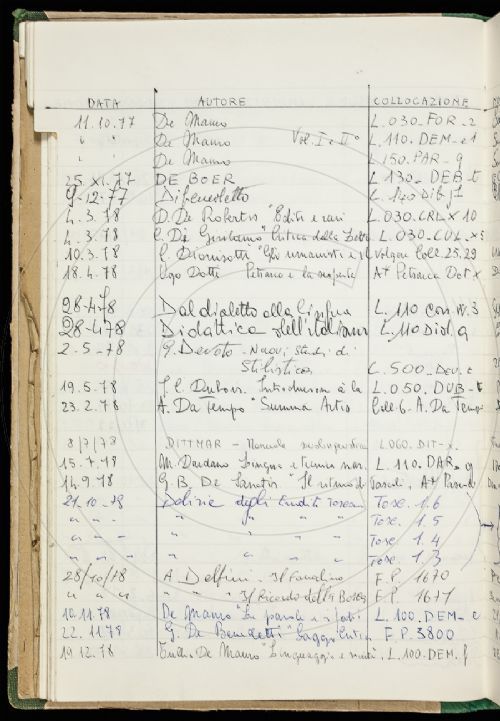 DATA AUTORE COLLOCAZIONE
11.10.77 De Mauro L.030.FOR.2
" " De Mauro Vol. I e II° L.110.DEM.e1
" " De Mauro L150.PAR-g
25.XI.77 DE BOER L.130.DEB.t
9-12-77 Dibenedetto
4.3.78 D. De Robertis "Editi e rari L.030.CRLX 10
4.3.78 C. Di Girolamo "Critica della L.030-CUL.X5
10.3.78 C. Dionisotti "Gli umanisti e il volgare Coll.25.29
18.4.78 Ugo Dotti Petrarca e la A+ Petrarca Dot X
28-4-78 Dal dialetto alla lingua L.110 con.W.3
28-4-78 Didattica dell'italiano L.110 Did.q
2-5-78 G. Devoto - Nuovi Studi di
Stilistica L.500.Dev.t
19.5.78 Dubois. Introduction à la L.050.DUB-t
23.2.78 A. Da Tempo "Summa Artis Coll.6.A.Da Tempo
8/7/78 DITTMAR - Manuale LOGO.DIT-X.
15.7.78 M. Dardano Lingua e L.110.DAR.g
14.9.78 G.B. De "Il ritorno di Pascoli, A+
21-10-78 Delizie degli Eruditi Toscani Tosc.1.6
" " - " " " Tosc.1.5
" " - " " " Tosc.1.4
" " " " " " Tosc.1.3
28/10/78 A. Delfini - Il Fanalino F.P. 1670
" " " " " Il Ricordo della Basca F.P. 1671
10.11.78 De Mauro "Le parole e i fatti L.100.DEM-c
22.11.78 G. De Benedetti "Saggi Critici F.P.3800
19.12.78 Tullio De Mauro "Linguaggio e L.100.DEM.f